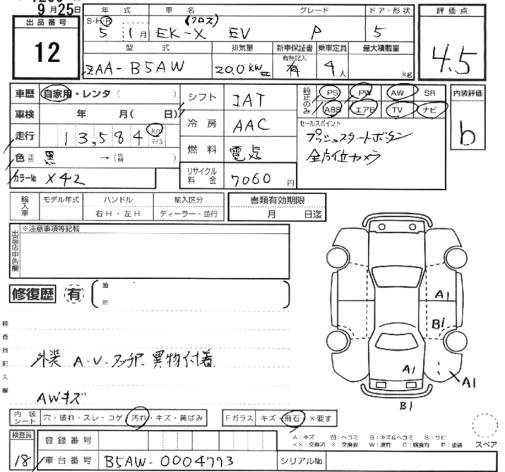 9月25日
出品番号
12
年式 車名 グレード ドア・形状
S・H・R 5 1月 EK-X (クロス) EV P 5
型式 排気量 新車保証書 乗車定員 最大積載量
ZAA-B5AW 20.0kw 有 4人 kg
評価点
4.5
車歴 自家用・レンタ( )
車検 年 月( 日)
走行 13,584 km マイル
色 黒 →( )
カラーNo X42
シフト IAT
冷房 AAC
燃料 電気
リサイクル料金 7060円
純正のみ PS PW AW SR
ABS エアB TV ナビ
セールスポイント
プッシュスタートボタン
全方位カメラ
内装評価
b
輸入車 モデル年式 ハンドル 輸入区分
年 右H・左H ディーラー・並行
書類有効期限
月 日迄
※注意事項等記載
出品店申告欄
修復歴 有 箇所
検査員記入欄
外装 A.V. 異物付着
AWキズ
A1
B1
A1
A1
B1
内装シート 穴・破れ・スレ・コゲ 汚れ・キズ・黄ばみ
Fガラス キズ・飛石・×要す
A:キズ U:ヘコミ B:キズ&ヘコミ S:サビ
XX:交換済 X:交換要 W:波打 C:腐食有 P:塗装
スペア
検査員 18
登録番号
車台番号 B5AW-0004773
シリアルNo